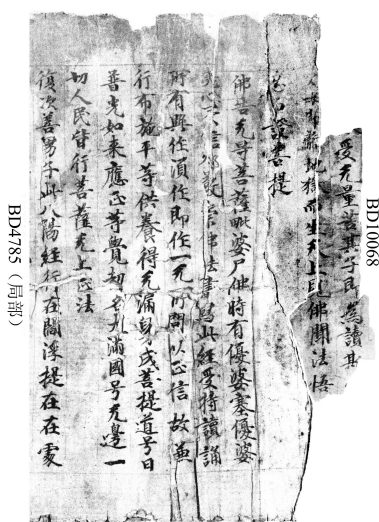 BD10068
受无量苦其子即為讀其
地獄而生天上見佛聞法悟
證菩提
佛告无㝵菩薩毗婆尸佛時有優婆塞優婆
信邪敬崇佛法書寫此經受持讀誦
所有興作須作即作一无所問以正信故兼
行布施平等供養得无漏身成菩提道号曰
普光如来應正等覺劫名大滿國号无邊一
切人民皆行菩薩无上正法
復次善男子此八陽経行在閻浮提在在處
BD4785(局部)